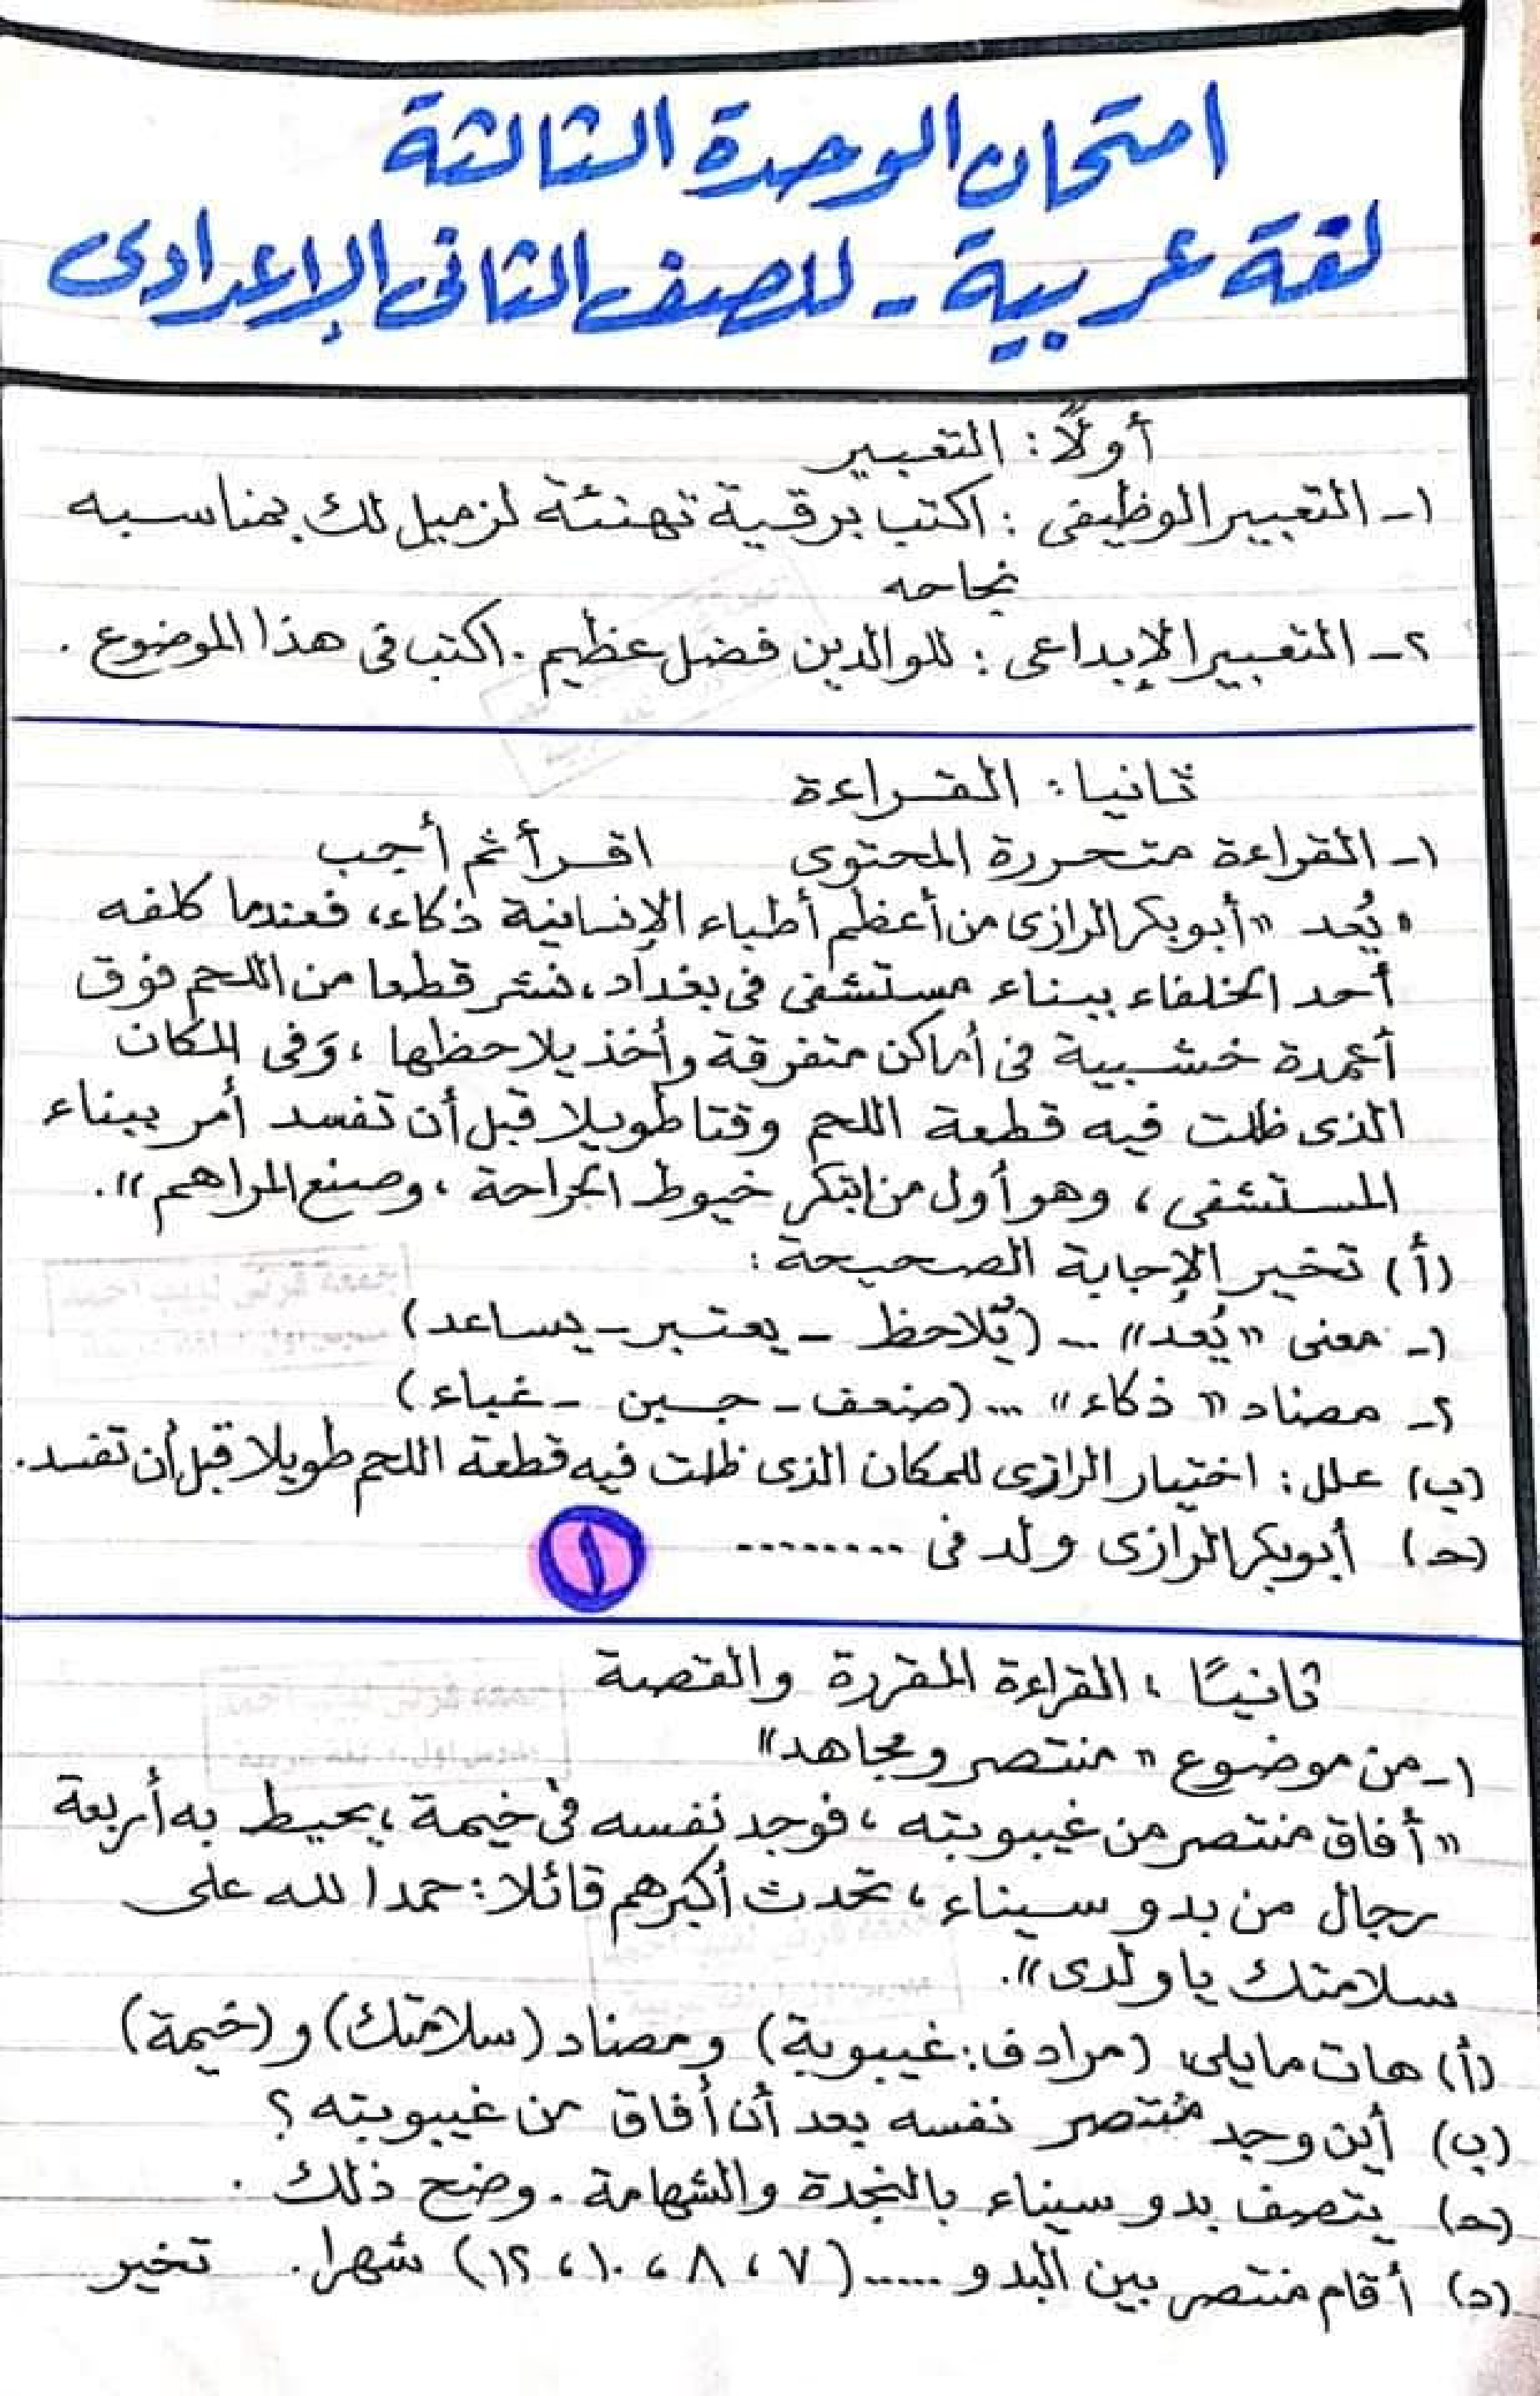 امتحان الوحدة الثالثة
لغة عربية - للصف الثانى الإعدادى
أولاً : التعبير
١- التعبير الوظيفى : اكتب برقية تهنئة لزميل لك بمناسبه
نجاحه
٢- التعبير الإبداعى : للوالدين فضل عظيم . اكتب فى هذا الموضوع .
ثانيا : القراءة
١- القراءة متحررة المحتوى اقرأ ثم أجب
" يُعد "أبوبكر الرازى من أعظم أطباء الإنسانية ذكاء، فعندما كلفه
أحد الخلفاء ببناء مستشفى فى بغداد، نشر قطعا من اللحم فوق
أعمدة خشبية فى أماكن متفرقة وأخذ يلاحظها ، وَفى المكان
الذى ظلت فيه قطعة اللحم وقتا طويلا قبل أن تفسد أمر ببناء
المستشفى ، وهو أول من ابتكر خيوط الجراحة ، وصنع المراهم ".
(أ) تخير الإجابة الصحيحة :
١- معنى "يُعد" ... (يُلاحظ - يعتبر - يساعد)
٢- مضاد " ذكاء " ... (ضعف - جبن - غباء)
(ب) علل : اختيار الرازى للمكان الذى ظلت فيه قطعة اللحم طويلا قبل أن تفسد.
(حـ) أبوبكر الرازى ولد فى .........
١
ثانيًا ، القراءة المقررة والقصة
١- من موضوع " منتصر ومجاهد "
" أفاق منتصر من غيبوبته ، فوجد نفسه فى خيمة ، يحيط به أربعة
رجال من بدو سيناء ، تحدث أكبرهم قائلا : حمدا لله على
سلامتك يا ولدى ".
(أ) هات مايلى (مرادف : غيبوبة) ومضاد (سلامتك) و (خيمة)
(ب) أين وجد منتصر نفسه بعد أن أفاق من غيبوبته ؟
(حـ) يتصف بدو سيناء بالنجدة والشهامة . وضح ذلك .
(د) أقام منتصر بين البدو ..... (٧ ، ٨ ، ١٠ ، ١٢) شهرا. تخير